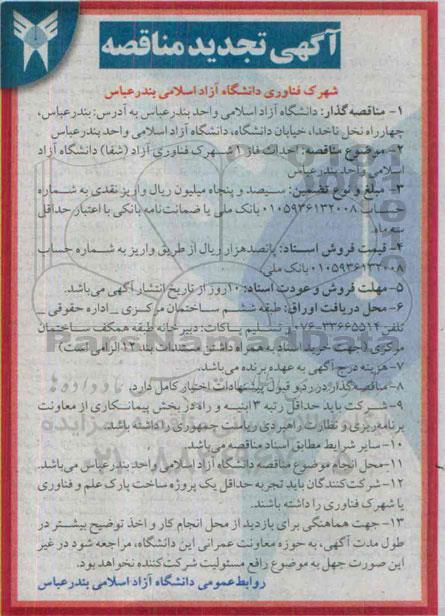 آگهی تجدید مناقصه
شهرک فناوری دانشگاه آزاد اسلامی بندرعباس
۱- مناقصه‌گذار: دانشگاه آزاد اسلامی واحد بندرعباس به آدرس: بندرعباس،
چهارراه نخل ناخدا، خیابان دانشگاه، دانشگاه آزاد اسلامی واحد بندرعباس
۲- موضوع مناقصه: احداث فاز ۱ شهرک فناوری آزاد (شفا) دانشگاه آزاد
اسلامی واحد بندرعباس
۳- مبلغ و نوع تضمین: سیصد و پنجاه میلیون ریال واریز نقدی به شماره
حساب ۰۱۰۵۹۳۶۱۳۲۰۰۸ بانک ملی یا ضمانت‌نامه بانکی با اعتبار حداقل
سه ماه
۴- قیمت فروش اسناد: پانصدهزار ریال از طریق واریز به شماره حساب
۰۱۰۵۹۳۶۱۳۲۰۰۸ بانک ملی
۵- مهلت فروش و عودت اسناد: ۱۰روز از تاریخ انتشار آگهی می‌باشد.
۶- محل دریافت اوراق: طبقه ششم ساختمان مرکزی _ اداره حقوقی _
تلفن ۳۳۶۶۵۵۱۴-۰۷۶ و تسلیم پاکات: دبیرخانه طبقه همکف ساختمان
مرکزی (جهت خرید اسناد به همراه داشتن مستندات بند ۱۲ الزامی است)
۷- هزینه درج آگهی به عهده برنده می‌باشد.
۸- مناقصه‌گذار در رد و قبول پیشنهادات اختیار کامل دارد.
۹- شرکت باید حداقل رتبه ۳ ابنیه و راه در بخش پیمانکاری از معاونت
برنامه‌ریزی و نظارت راهبردی ریاست جمهوری را داشته باشد.
۱۰- سایر شرایط مطابق اسناد مناقصه می‌باشد.
۱۱- محل انجام موضوع مناقصه دانشگاه آزاد اسلامی واحد بندرعباس می‌باشد.
۱۲- شرکت‌کنندگان باید تجربه حداقل یک پروژه ساخت پارک علم و فناوری
یا شهرک فناوری را داشته باشند.
۱۳- جهت هماهنگی برای بازدید از محل انجام کار و اخذ توضیح بیشتر در
طول مدت آگهی، به حوزه معاونت عمرانی این دانشگاه، مراجعه شود در غیر
این صورت جهل به موضوع رافع مسئولیت شرکت‌کننده نخواهد بود.
روابط‌عمومی دانشگاه آزاد اسلامی بندرعباس
ParsNamadData